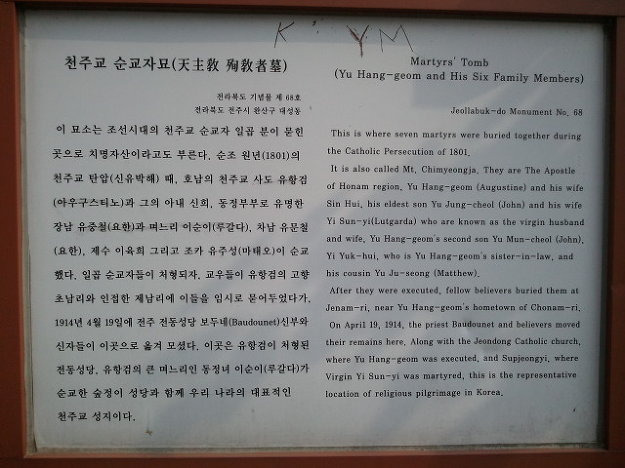 K YM
천주교 순교자묘(天主敎 殉敎者墓)
전라북도 기념물 제 68호
전라북도 전주시 완산구 대성동
이 묘소는 조선시대의 천주교 순교자 일곱 분이 묻힌
곳으로 치명자산이라고도 부른다. 순조 원년(1801)의
천주교 탄압(신유박해) 때, 호남의 천주교 사도 유항검
(아우구스티노)과 그의 아내 신희, 동정부부로 유명한
장남 유중철(요한)과 며느리 이순이(루갈다), 차남 유문철
(요한), 제수 이육희 그리고 조카 유주성(마태오)이 순교
했다. 일곱 순교자들이 처형되자, 교우들이 유항검의 고향
초남리와 인접한 제남리에 이들을 임시로 묻어두었다가,
1914년 4월 19일에 전주 전동성당 보두네(Baudounet)신부와
신자들이 이곳으로 옮겨 모셨다. 이곳은 유항검이 처형된
전동성당, 유항검의 큰 며느리인 동정녀 이순이(루갈다)가
순교한 숲정이 성당과 함께 우리 나라의 대표적인
천주교 성지이다.
Martyrs' Tomb
(Yu Hang-geom and His Six Family Members)
Jeollabuk-do Monument No. 68
This is where seven martyrs were buried together during
the Catholic Persecution of 1801.
It is also called Mt. Chimyeongja. They are The Apostle
of Honam region, Yu Hang-geom (Augustine) and his wife
Sin Hui, his eldest son Yu Jung-cheol (John) and his wife
Yi Sun-yi(Lutgarda) who are known as the virgin husband
and wife, Yu Hang-geom's second son Yu Mun-cheol (John),
Yi Yuk-hui, who is Yu Hang-geom's sister-in-law, and
his cousin Yu Ju-seong (Matthew).
After they were executed, fellow believers buried them at
Jenam-ri, near Yu Hang-geom's hometown of Chonam-ri.
On April 19, 1914, the priest Baudounet and believers moved
their remains here. Along with the Jeondong Catholic church,
where Yu Hang-geom was executed, and Supjeongyi, where
Virgin Yi Sun-yi was martyred, this is the representative
location of religious pilgrimage in Korea.